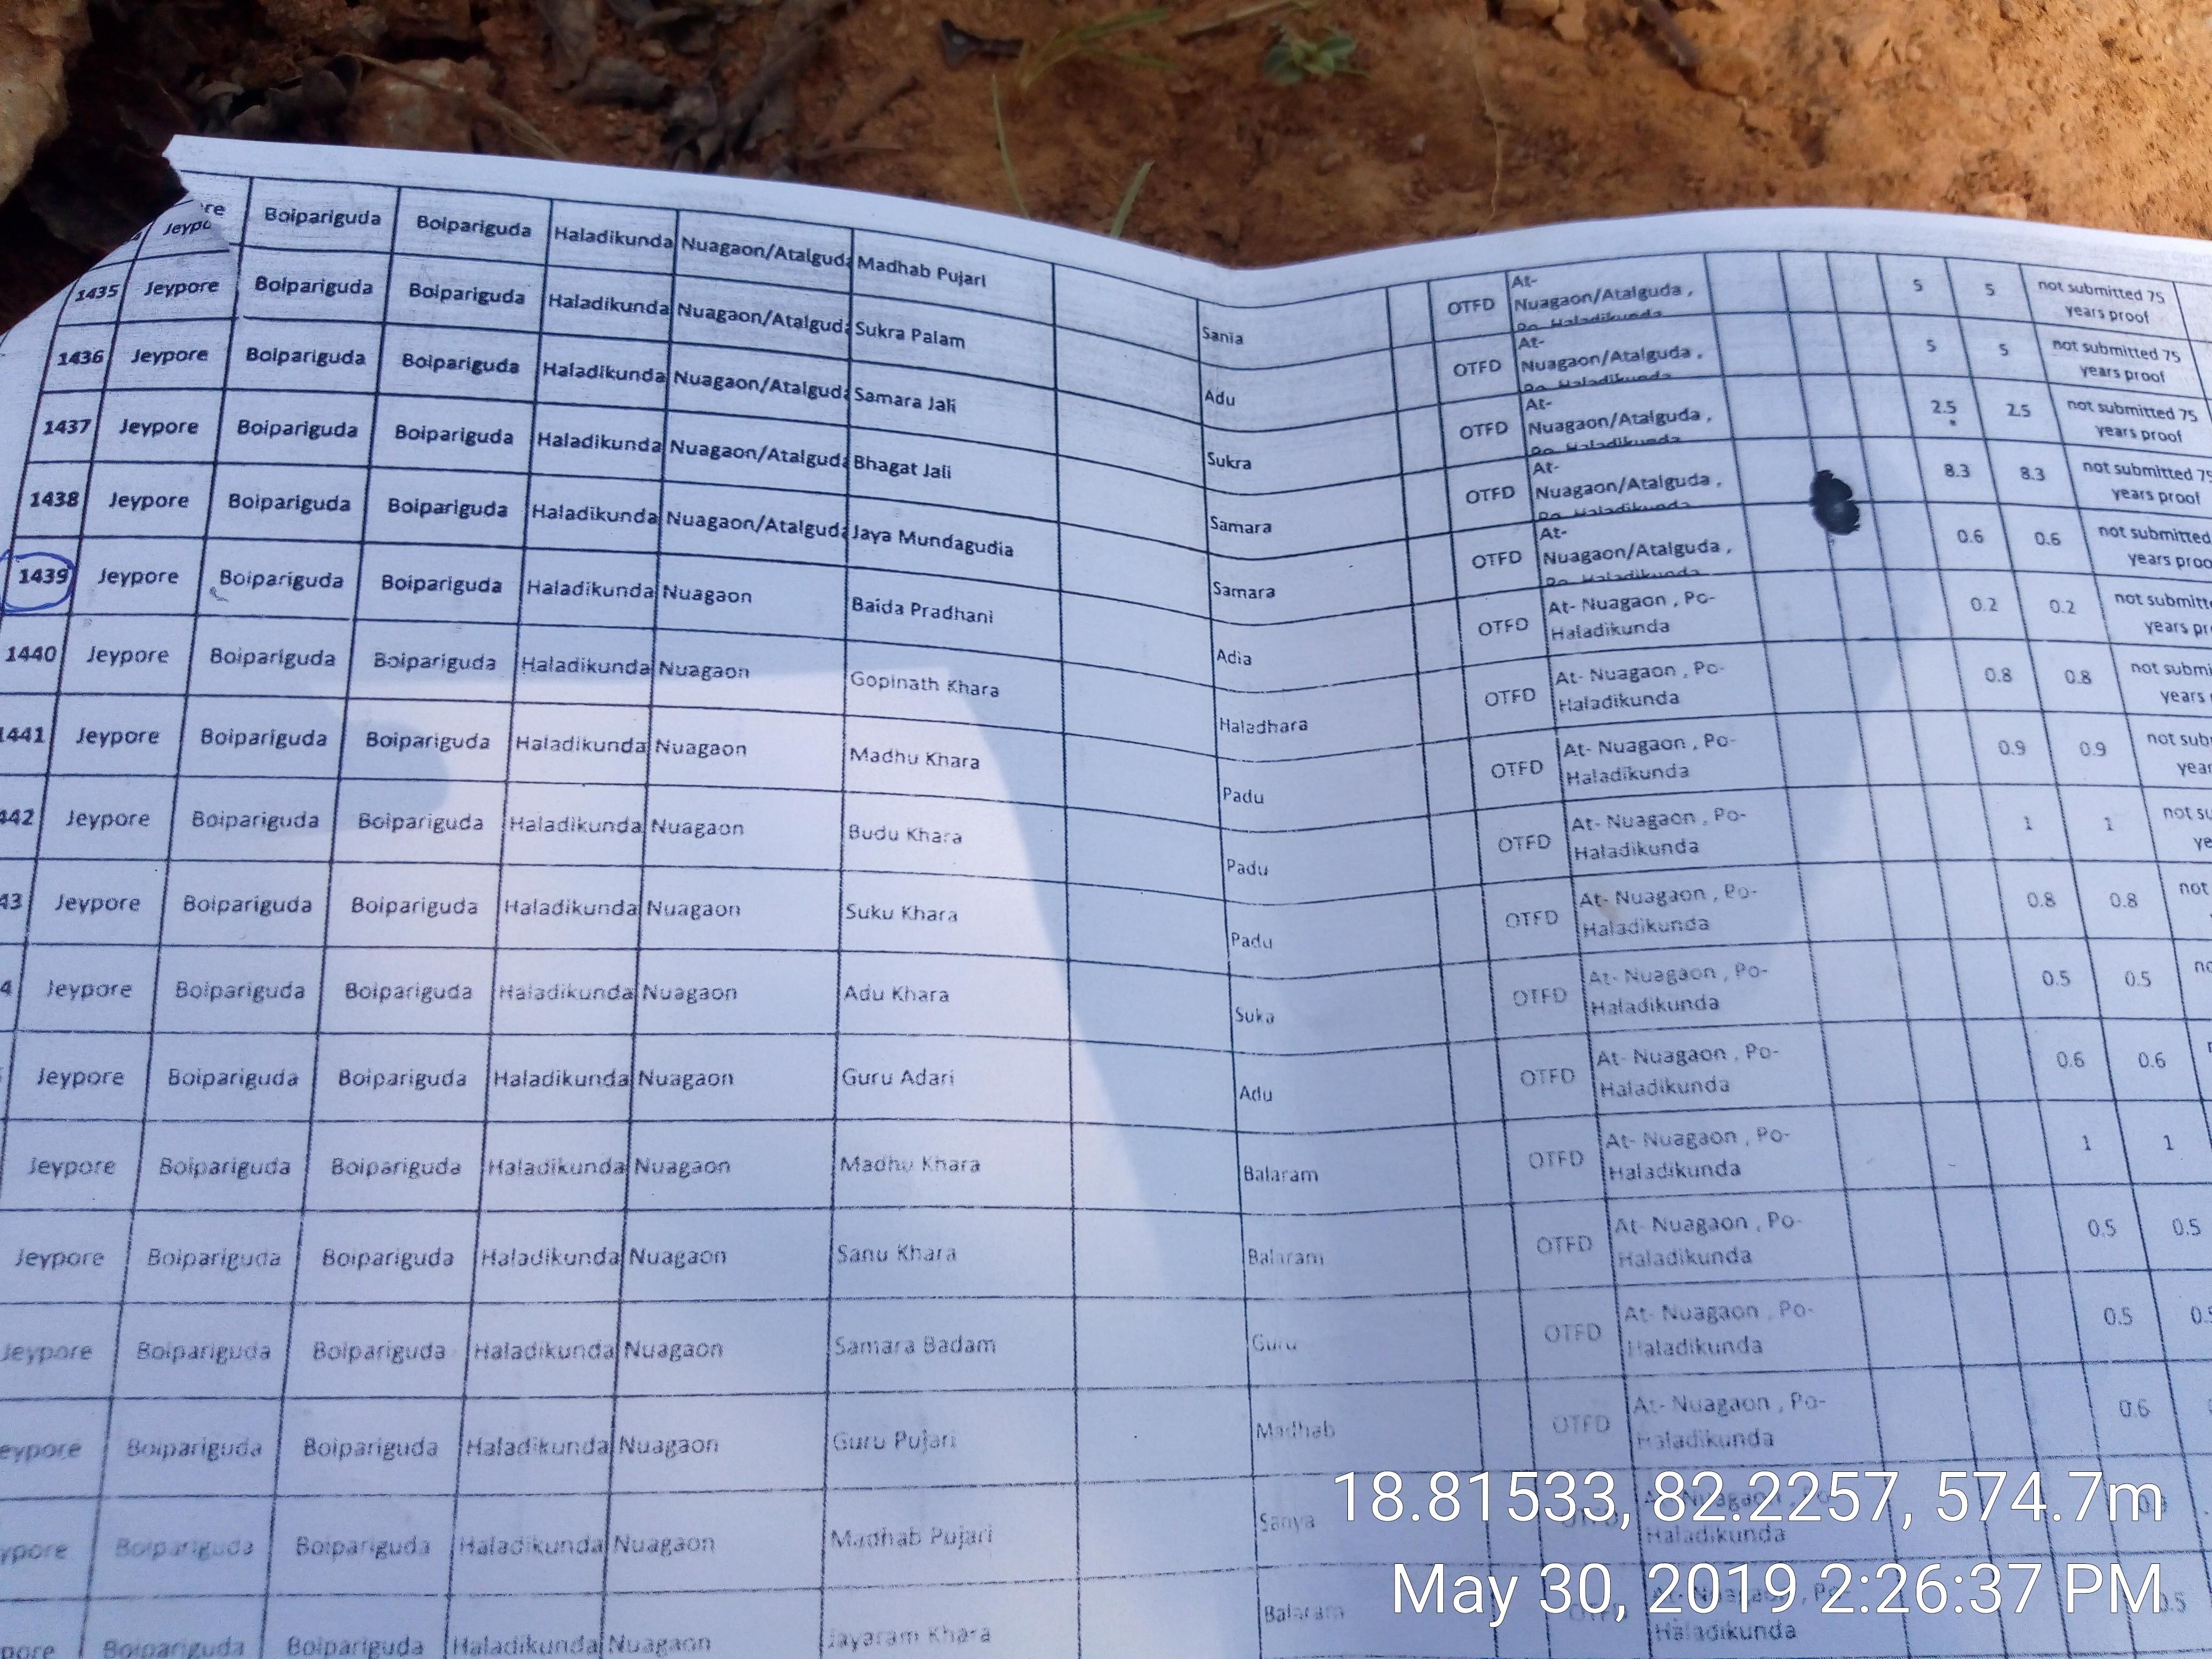 Jeypo re Boipariguda Boipariguda Haladikunda Nuagaon/Atalguda Madhab Pujari Sania OTFD At- 5 5 not submitted 75
Nuagaon/Atalguda , years proof
Po- Haladikunda
1435 Jeypore Boipariguda Boipariguda Haladikunda Nuagaon/Atalguda Sukra Palam Adu OTFD At- 5 5 not submitted 75
Nuagaon/Atalguda , years proof
Po- Haladikunda
1436 Jeypore Boipariguda Boipariguda Haladikunda Nuagaon/Atalguda Samara Jali Sukra OTFD At- 2.5 2.5 not submitted 75
Nuagaon/Atalguda , years proof
Po- Haladikunda
1437 Jeypore Boipariguda Boipariguda Haladikunda Nuagaon/Atalguda Bhagat Jali Samara OTFD At- 8.3 8.3 not submitted 75
Nuagaon/Atalguda , years proof
Po- Haladikunda
1438 Jeypore Boipariguda Boipariguda Haladikunda Nuagaon/Atalguda Jaya Mundagudia Samara OTFD At- 0.6 0.6 not submitted
Nuagaon/Atalguda , years proo
Po- Haladikunda
1439 Jeypore Boipariguda Boipariguda Haladikunda Nuagaon Baida Pradhani Adia OTFD At- Nuagaon , Po- 0.2 0.2 not submitte
Haladikunda years pr
1440 Jeypore Boipariguda Boipariguda Haladikunda Nuagaon Gopinath Khara Haladhara OTFD At- Nuagaon , Po- 0.8 0.8 not submi
Haladikunda years
1441 Jeypore Boipariguda Boipariguda Haladikunda Nuagaon Madhu Khara Padu OTFD At- Nuagaon , Po- 0.9 0.9 not sub
Haladikunda year
442 Jeypore Boipariguda Boipariguda Haladikunda Nuagaon Budu Khara Padu OTFD At- Nuagaon , Po- 1 1 not su
Haladikunda ye
43 Jeypore Boipariguda Boipariguda Haladikunda Nuagaon Suku Khara Padu OTFD At- Nuagaon , Po- 0.8 0.8 not
Haladikunda
4 Jeypore Boipariguda Boipariguda Haladikunda Nuagaon Adu Khara Suka OTFD At- Nuagaon , Po- 0.5 0.5 no
Haladikunda
Jeypore Boipariguda Boipariguda Haladikunda Nuagaon Guru Adari Adu OTFD At- Nuagaon , Po- 0.6 0.6
Haladikunda
Jeypore Boipariguda Boipariguda Haladikunda Nuagaon Madhu Khara Balaram OTFD At- Nuagaon , Po- 1 1
Haladikunda
Jeypore Boipariguda Boipariguda Haladikunda Nuagaon Sanu Khara Balaram OTFD At- Nuagaon , Po- 0.5 0.5
Haladikunda
Jeypore Boipariguda Boipariguda Haladikunda Nuagaon Samara Badam Guru OTFD At- Nuagaon , Po- 0.5 0.5
Haladikunda
eypore Boipariguda Boipariguda Haladikunda Nuagaon Guru Pujari Madhab OTFD At- Nuagaon , Po- 0.6
Haladikunda
ypore Boipariguda Boipariguda Haladikunda Nuagaon Madhab Pujari Sanya OTFD At- Nuagaon , Po-
Haladikunda
pore Boipariguda Boipariguda Haladikunda Nuagaon Jayaram Khara Balaram OTFD At- Nuagaon , Po- 0.5
Haladikunda
18.81533, 82.2257, 574.7m
May 30, 2019 2:26:37 PM